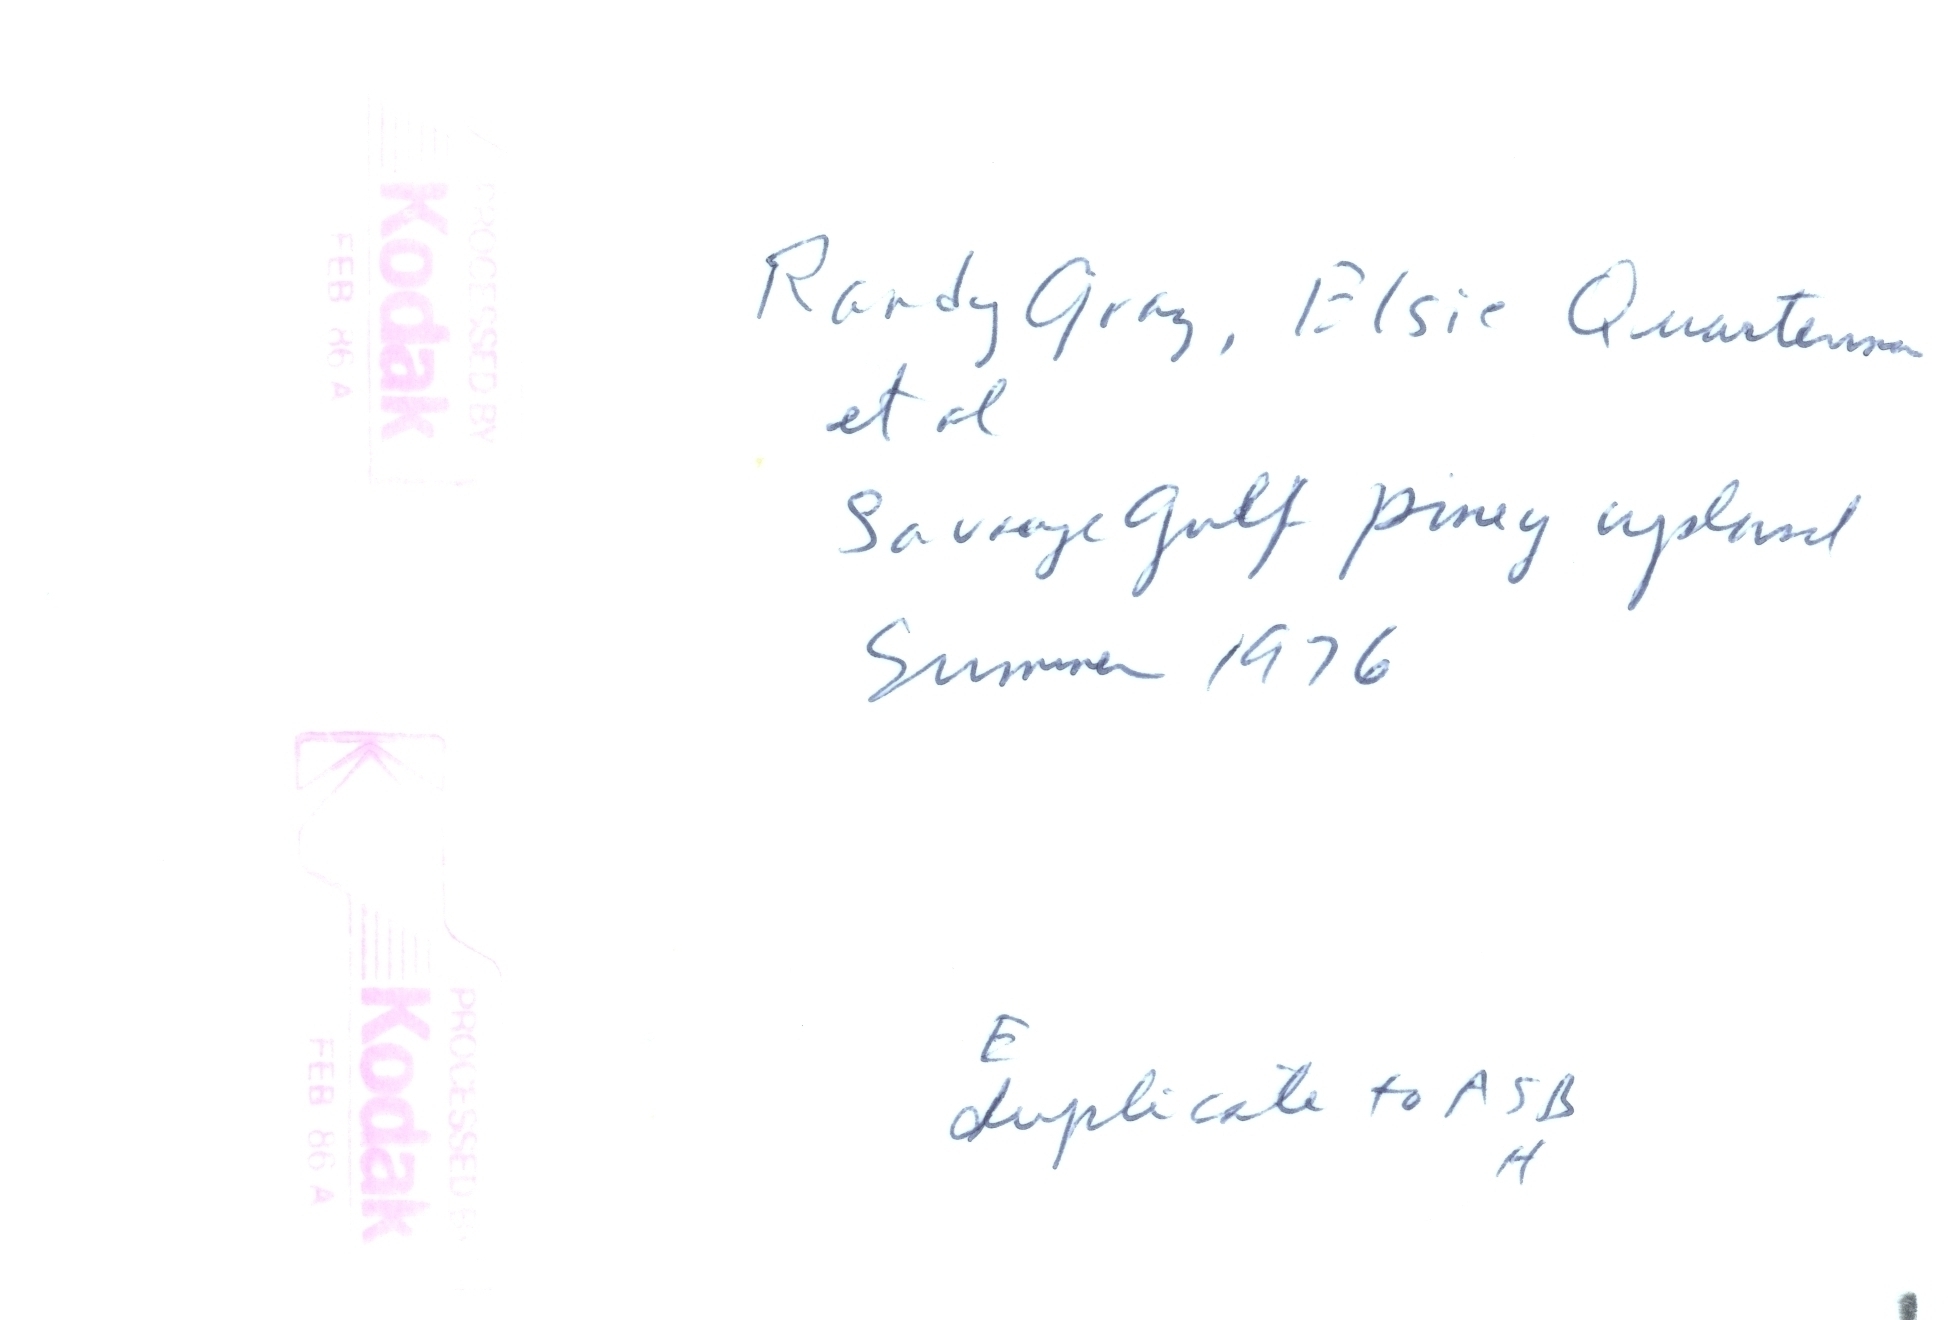 Randy Gray, Elsie Quarterman
et al
Savage Gulf piney upland
Summer 1976
E
duplicate to ASB
H
PROCESSED BY
Kodak
FEB 86 A
PROCESSED BY
Kodak
FEB 86 A